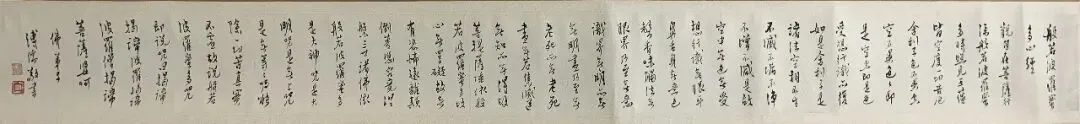 般若波羅蜜
多心經
觀自在菩薩行
深般若波羅蜜
多時照見五蘊
皆空度一切苦厄
舍利子色不異空
空不異色色即
是空空即是色
受想行識亦復
如是舍利子是
諸法空相不生
不滅不垢不淨
不增不減是故
空中無色無受
想行識無眼耳
鼻舌身意無色
聲香味觸法無
眼界乃至無意
識界無無明亦無
無明盡乃至無
老死亦無老死
盡無苦集滅道
無智亦無得
菩提薩埵依般
若波羅蜜多故
心無罣礙故無
有恐怖遠離顛
倒夢想究竟涅
槃三世諸佛依
般若波羅蜜多
是大神咒是大
明咒是無上咒
是無等等咒能
除一切苦真實
不虛故說般若
波羅蜜多咒
即說咒曰揭諦
揭諦波羅揭諦
波羅僧揭諦
菩提薩婆訶
佛弟子